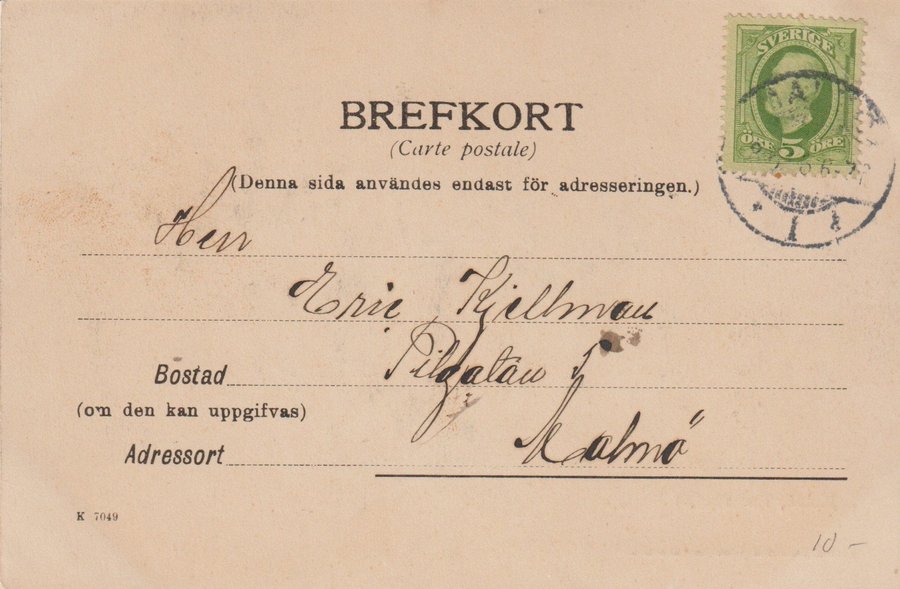 SVERIGE
ÖRE 5 ÖRE
BREFKORT
(Carte postale)
(Denna sida användes endast för adresseringen.)
Herr
Eric Kjellman
Pilgatan 5
Bostad
(om den kan uppgifvas)
Malmö
Adressort
K 7049
10 –